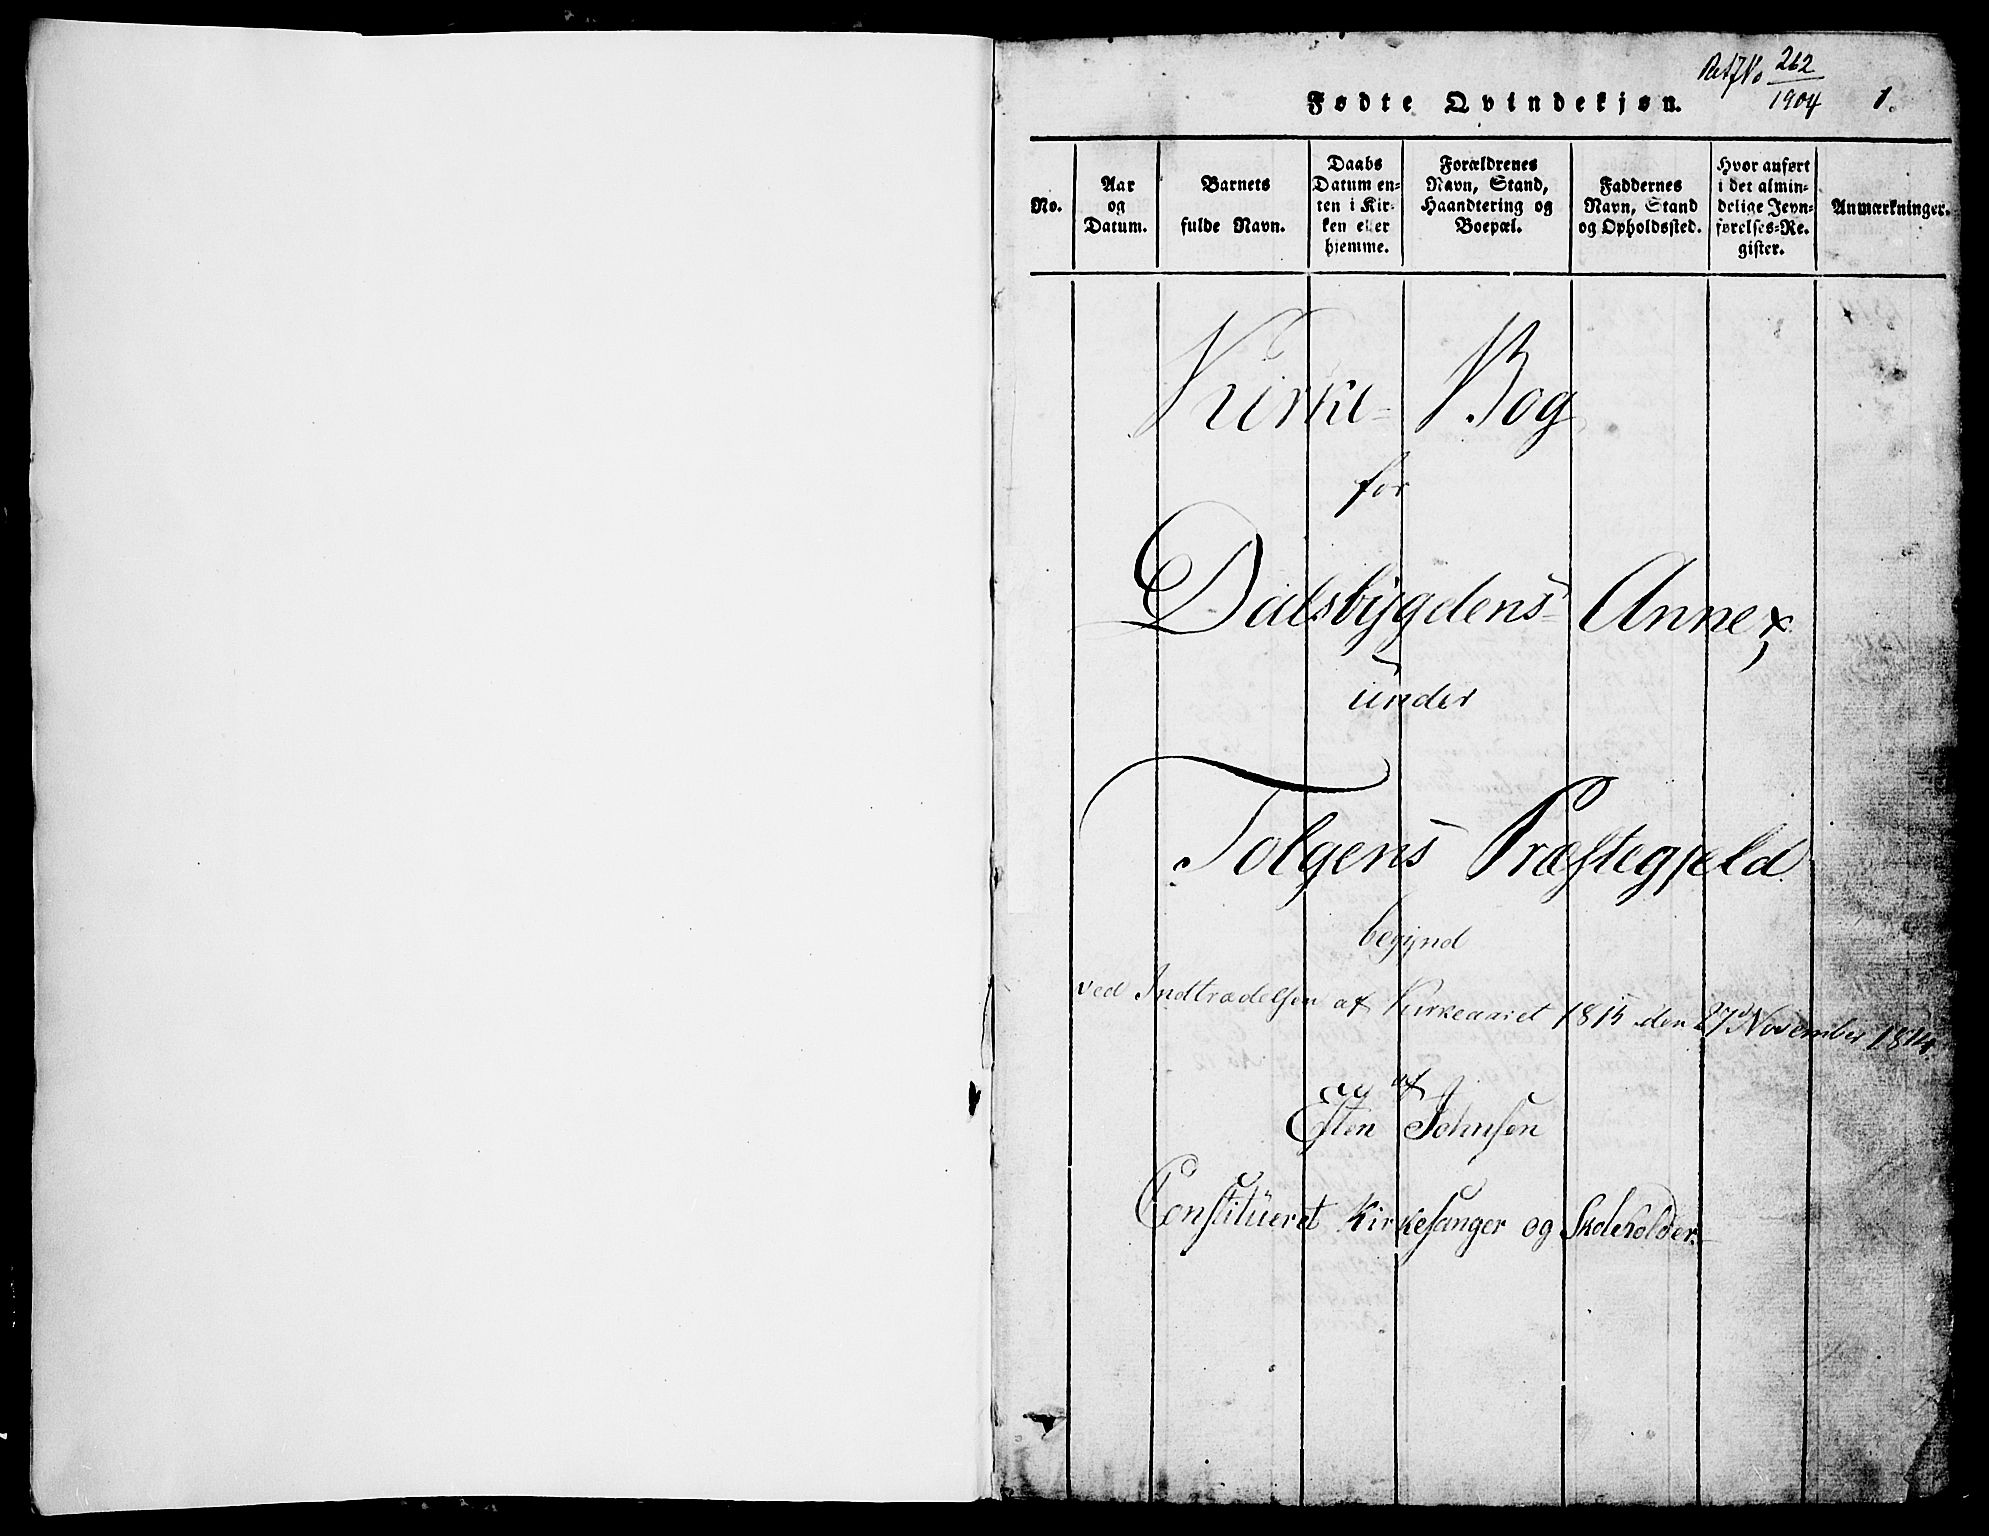 262
1904
1.
Fødte Qvindekjøn.
No.
Aar
og
Datum.
Barnets
fulde Navn.
Daabs
Datum en-
ten i Kir-
ken eller
hjemme.
Forældrenes
Navn, Stand,
Haandtering og
Boepæl.
Faddernes
Navn, Stand
og Opholdssted.
Hvor anført
i det almin-
delige Jevn-
førelses-Re-
gister.
Anmærkninger.
Kirke-Bog
for
Dalsbygdens Annex
under
Tolgens Præstegjeld
begynd
ved Indtrædelsen af Kirkeaaret 1815 den 27d November 1814.
af
Esten Johnsen
Constitueret Kirkesanger og Skoleholder.